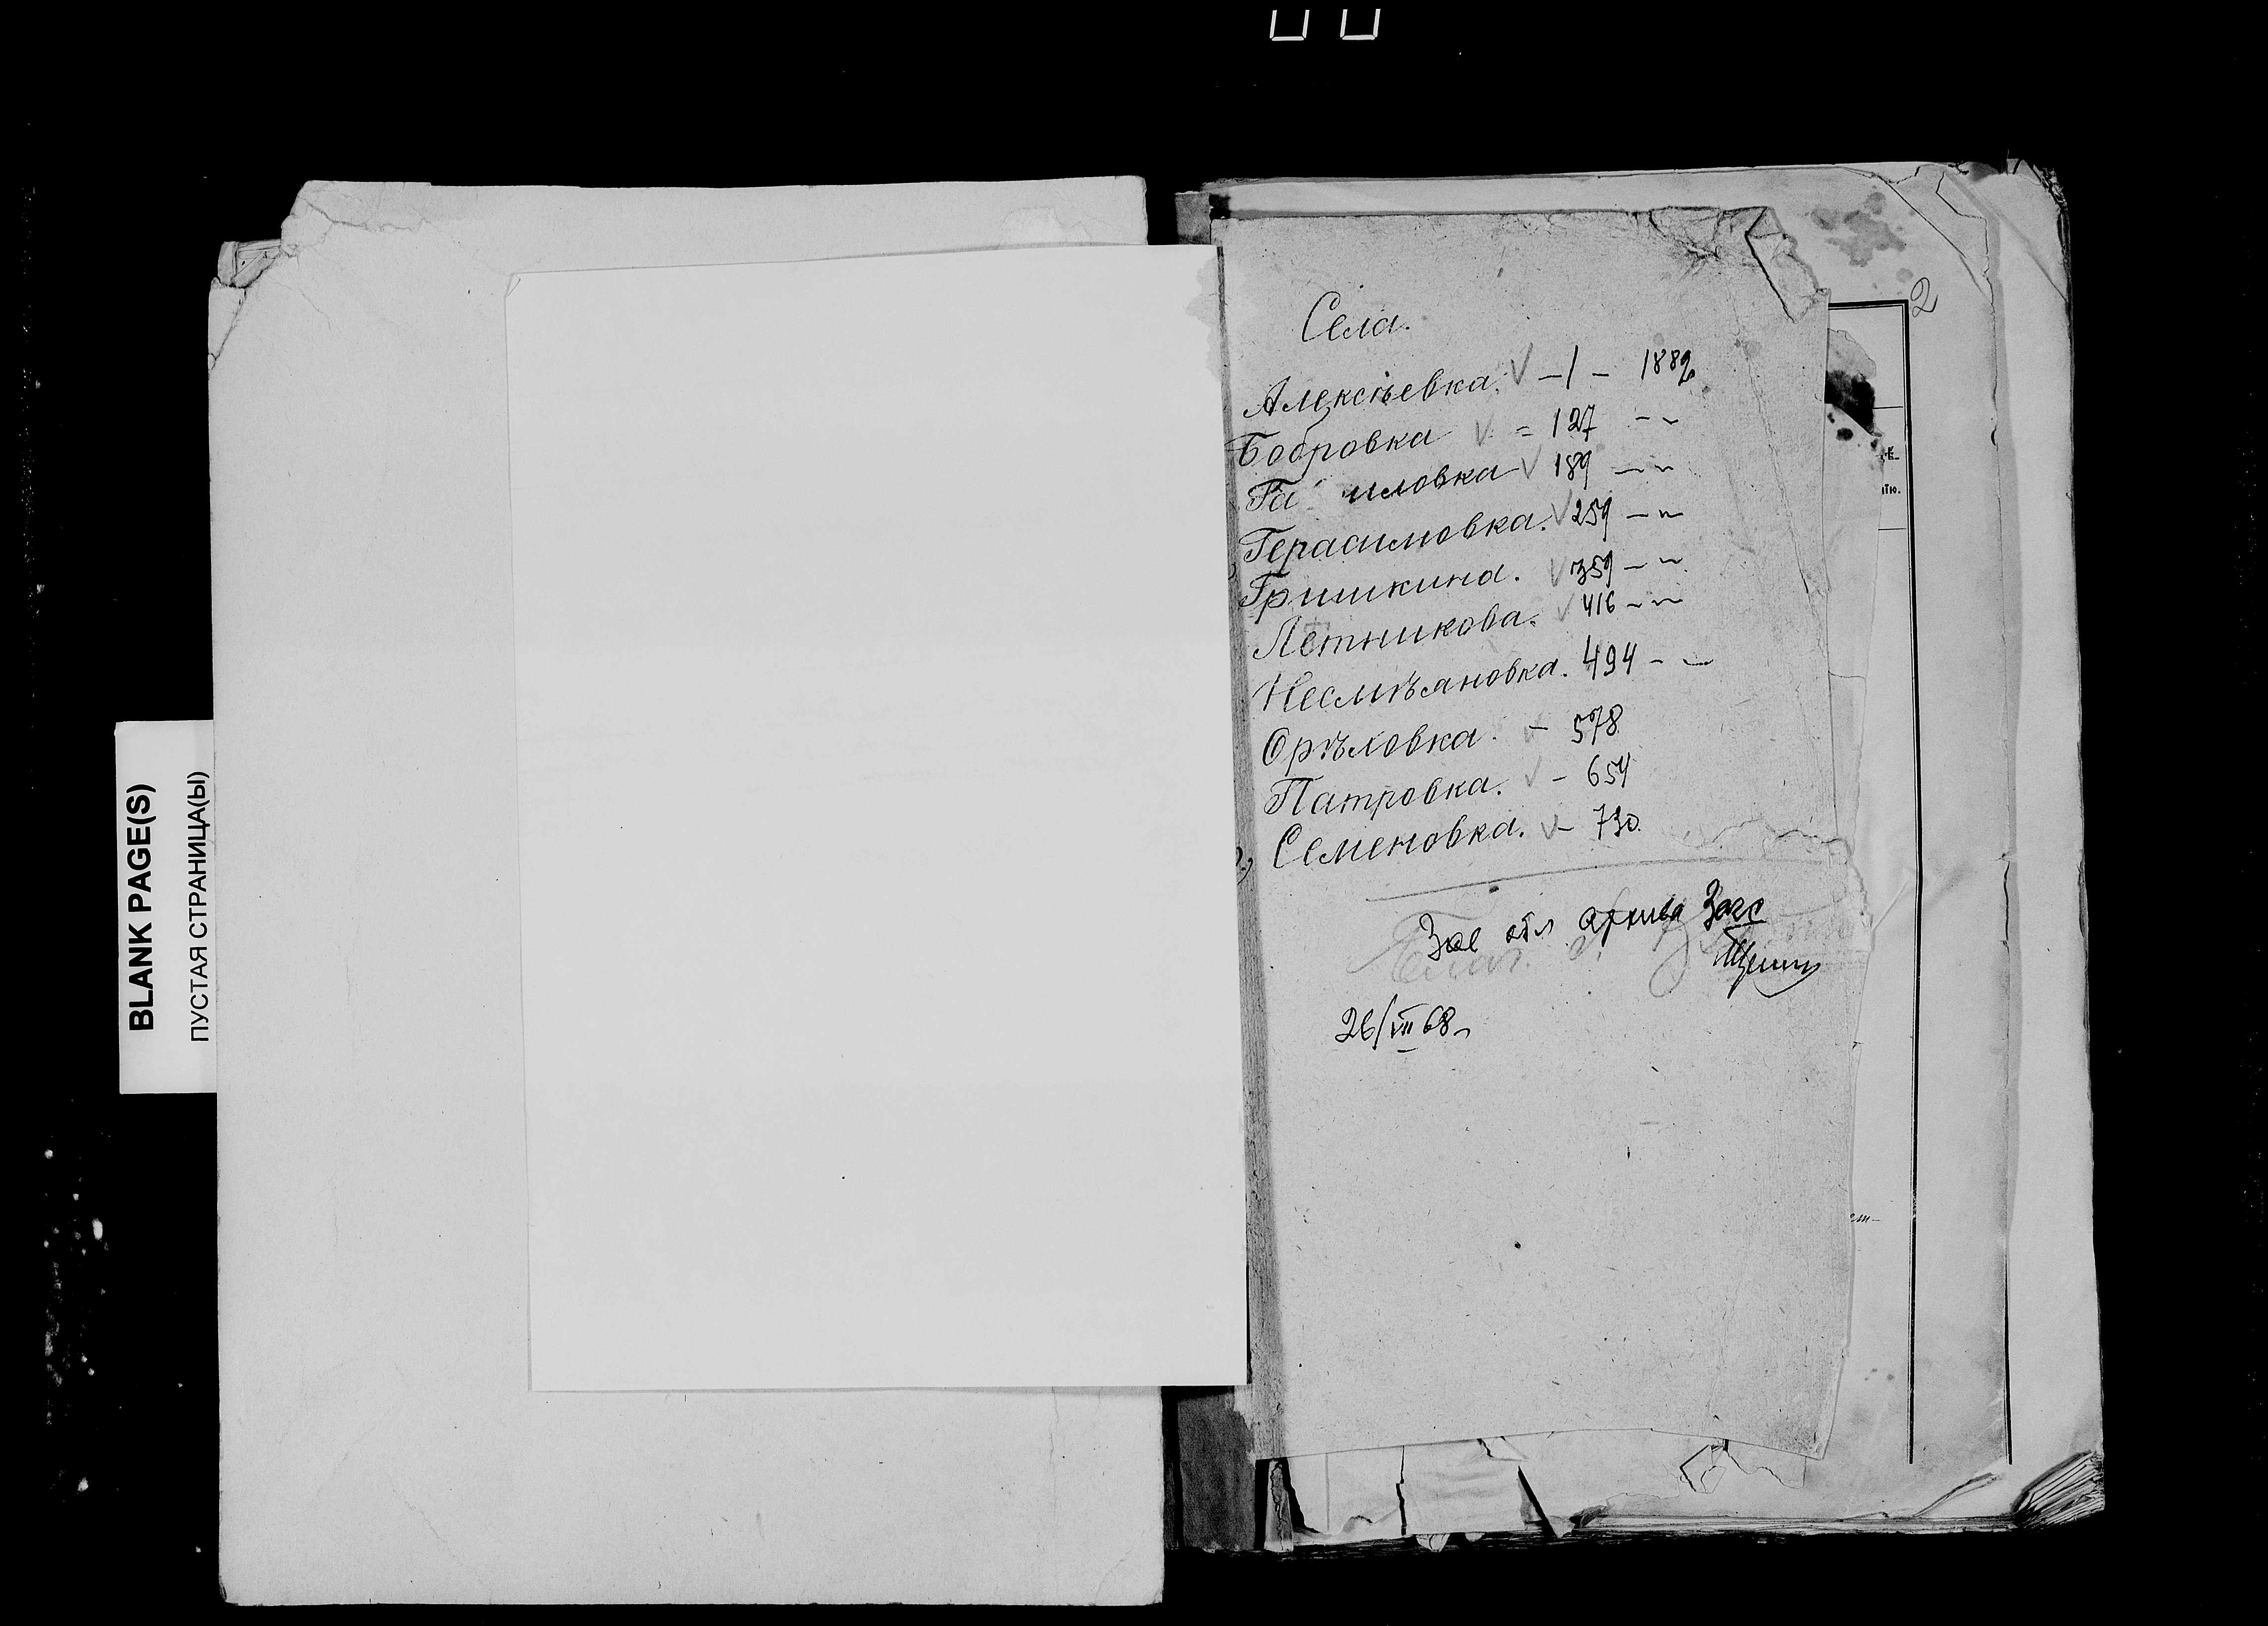 BLANK PAGE(S)
ПУСТАЯ СТРАНИЦА(Ы)
2
Села.
Алексѣевка. V – 1 – 1882
Бобровка V = 127 – ~
Га иловка V 189 – ~
Герасимовка. V 259 – ~
Гришкина. V 359 – ~
Летникова. V 416 – ~
Несмѣяновка. 494 – –
Орѣловка. V – 578
Патровка. V – 654
Семеновка. V – 730.
Зав отл архива Загс
26/VII 68